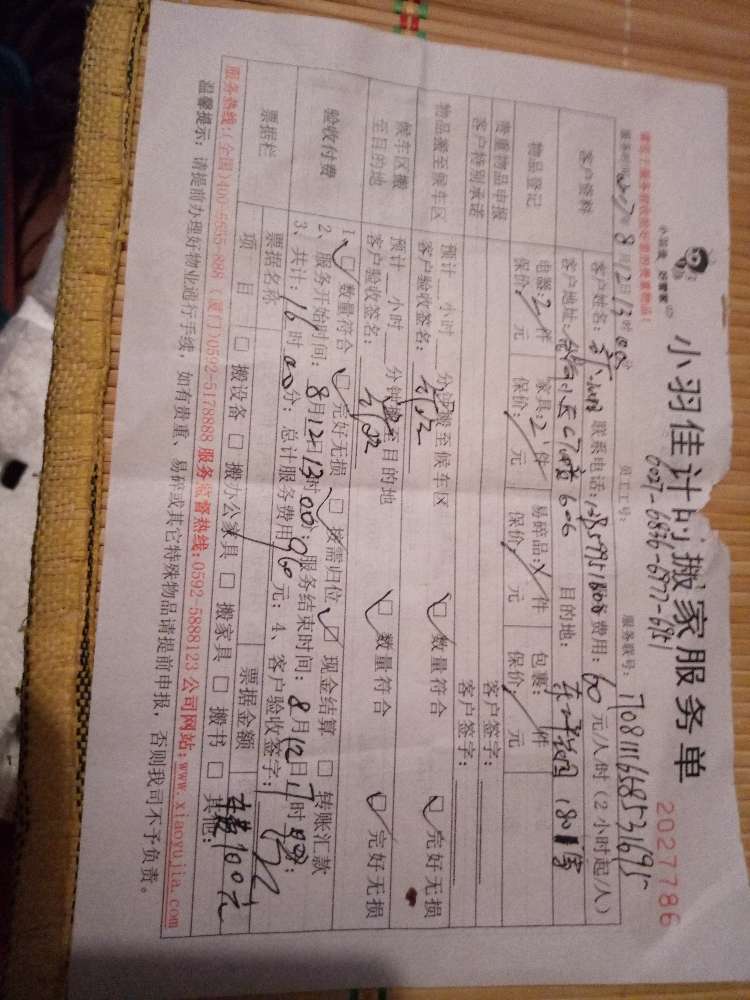 小羽佳 好管家
小羽佳计时搬家服务单
2027786
6027-6836-6977-6951
员工工号: 服务联号: 1708111668531695
8月12日13时00分
客户资料 客户姓名: 联系电话: 费用: 60元/人/时(2小时起/人)
客户地址: 606 目的地: 1801室
物品登记 电器:2件 家具:2件 易碎品:/件 包裹:/件
保价:/元 保价:/元 保价:/元 保价:/元
贵重物品申报 客户签字:
客户特别承诺 客户签字:
物品搬至候车区 预计__小时__分钟搬至候车区 ☑数量符合 ☑完好无损
客户验收签名:
候车区搬至目的地 预计__小时__分钟搬至目的地 ☑数量符合 ☑完好无损
客户验收签名:
验收付费 1、☑数量符合 ☑完好无损 ☑按需归位 ☑现金结算 □转账汇款
2、服务开始时间:8月12日13时00分;服务结束时间:8月12日17时
3、共计:16时00分;总计服务费用960元;4、客户验收签字:
票据栏 票据名称 票据金额
项目 □搬设备 □搬办公家具 □搬家具 □搬书 □其他: 100元
服务热线:(全国)400-5555-898 (厦门)0592-5178888 服务监督热线:0592-5888123 公司网站:www.xiaoyujia.com
温馨提示: 请提前办理好物业通行手续,如有贵重、易碎或其它特殊物品请提前申报,否则我司不予负责。